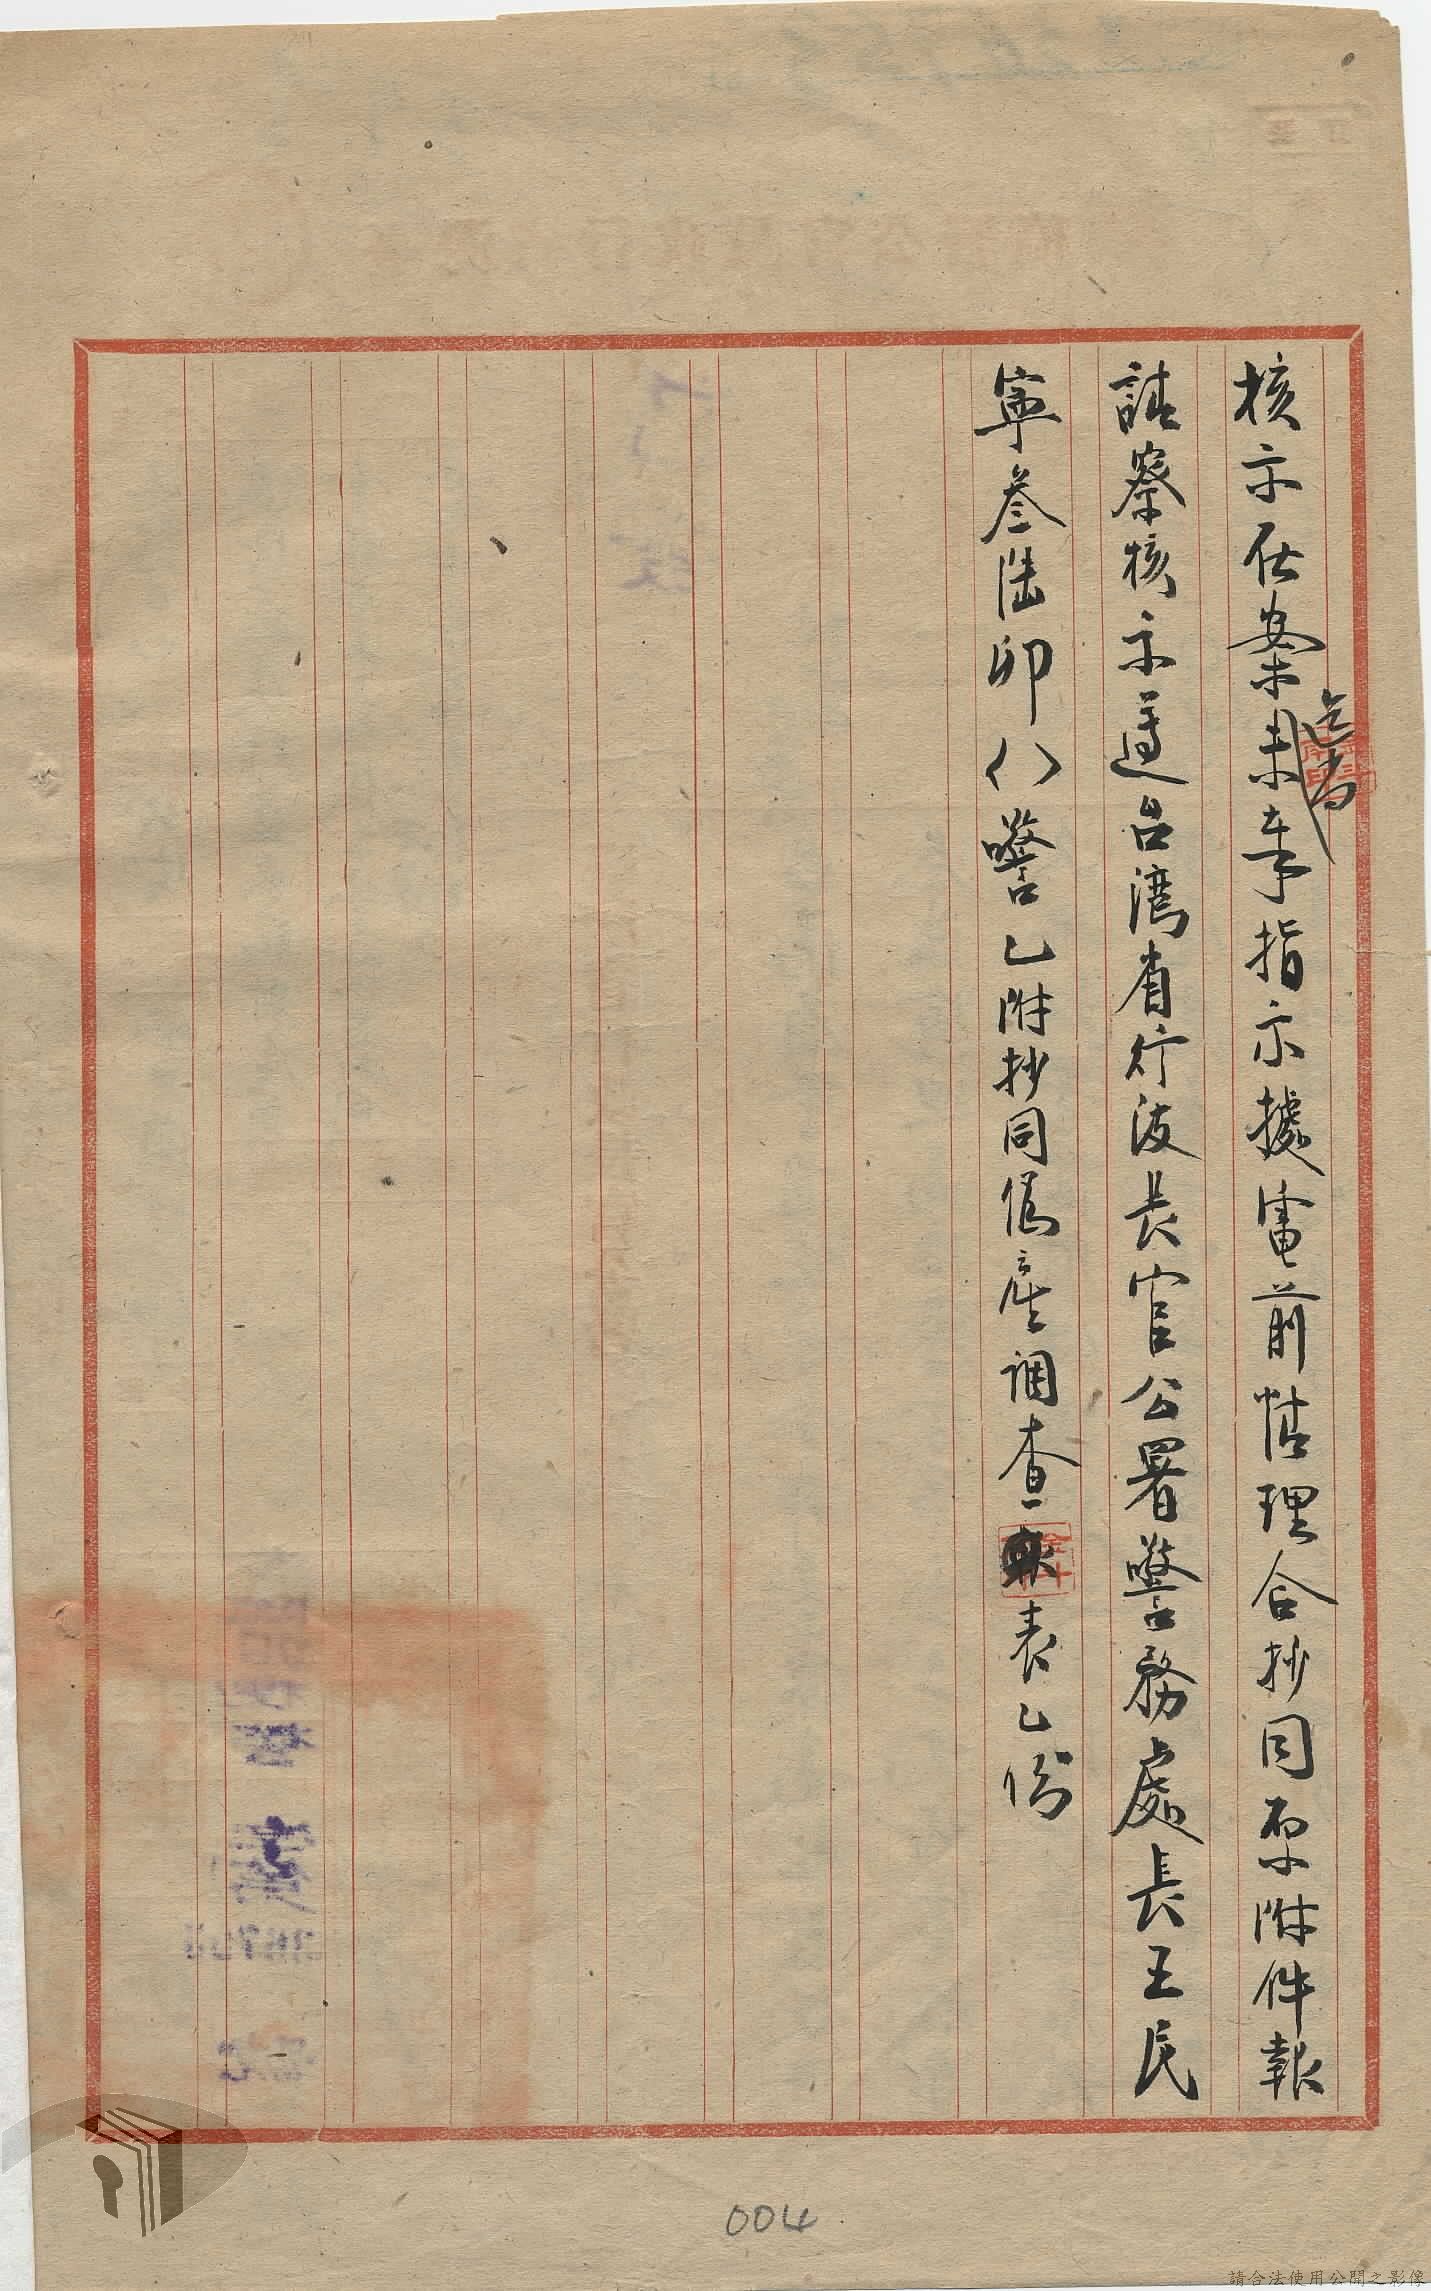 核示在案迄尚未奉指示據電前情理合抄同原附件報
請察核示遵台湾省行政長官公署警務處長王民
寧叄陸卯八警乙附抄同偽産调查表乙份
004
請合法使用公開之影像